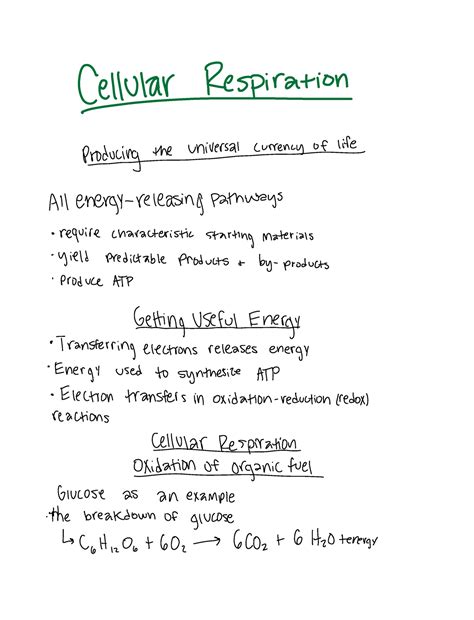 Cellular Respiration
Producing the universal currency of life
All energy-releasing pathways
• require characteristic starting materials
• yield predictable products + by-products
• Produce ATP
Getting Useful Energy
• Transferring electrons releases energy
• Energy used to synthesize ATP
• Electron transfers in oxidation-reduction (redox)
reactions
Cellular Respiration
Oxidation of organic fuel
Glucose as an example
• the breakdown of glucose
↳ C₆H₁₂O₆ + 6O₂ → 6CO₂ + 6 H₂O + energy